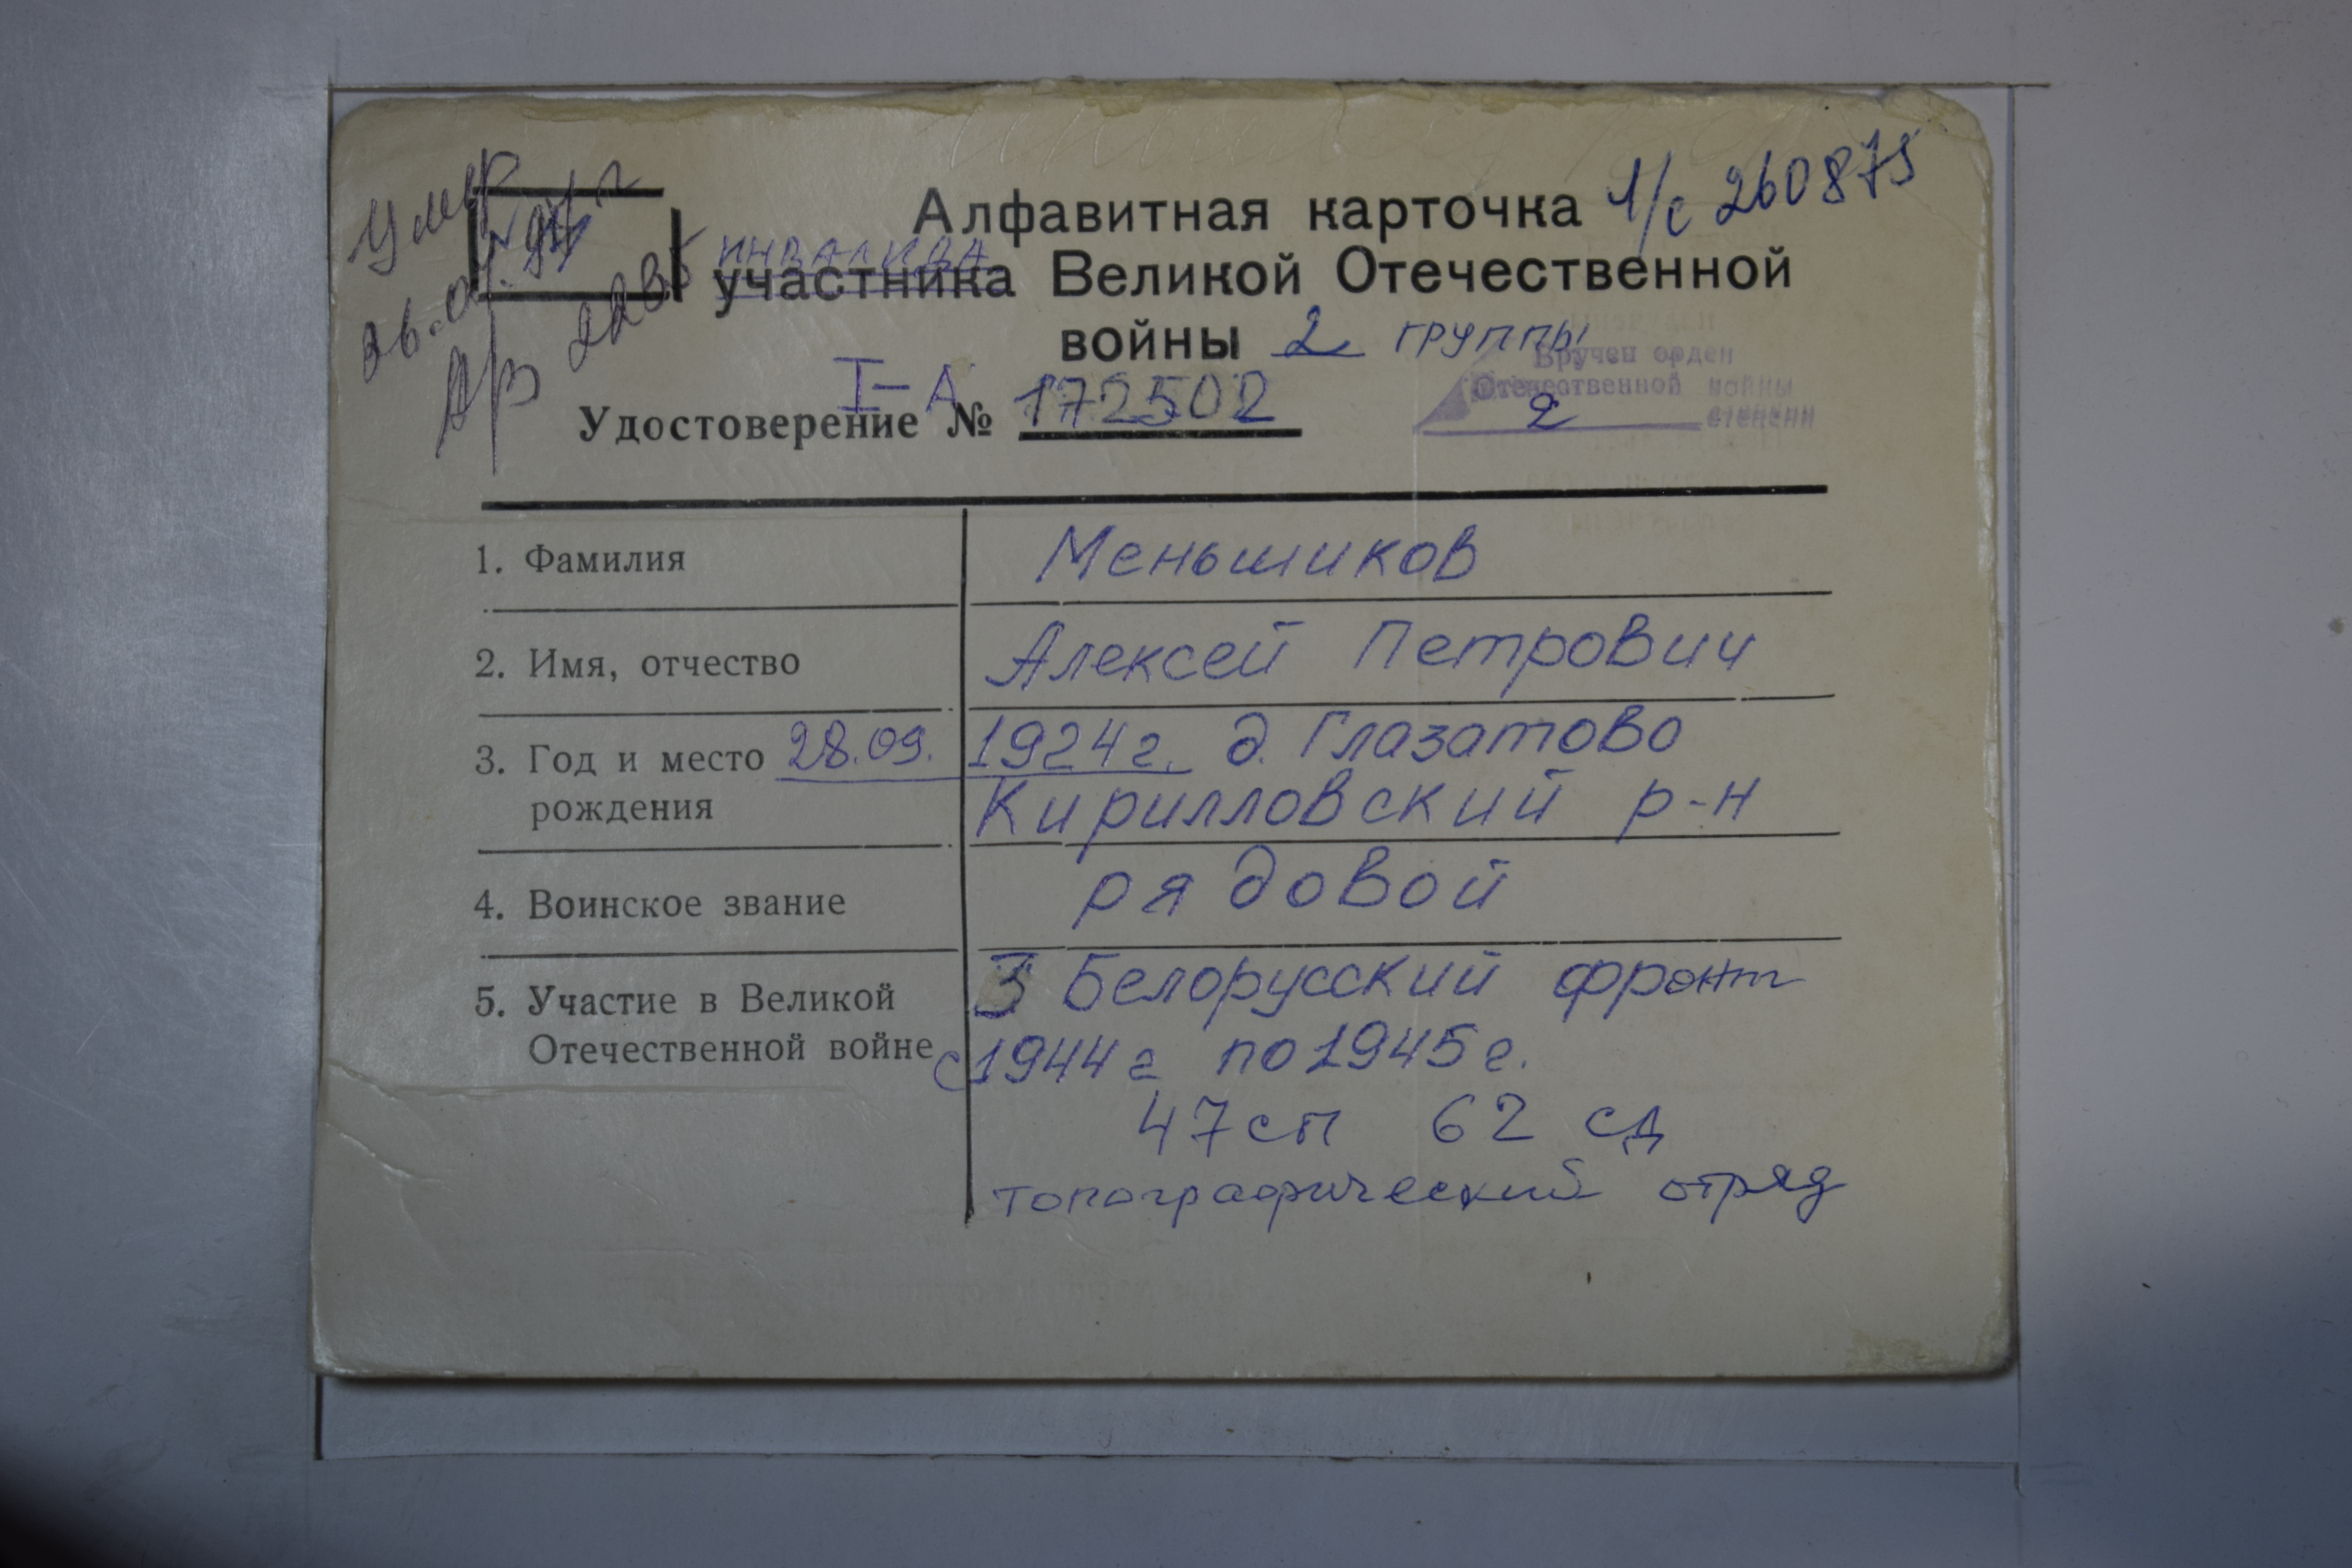 умер
а/з 2285
Алфавитная карточка л/с 260875
инвалида
участника Великой Отечественной
войны 2 группы
Вручен орден
Отечественной войны
2 степени
I-А
Удостоверение № 172502
1. Фамилия Меньшиков
2. Имя, отчество Алексей Петрович
3. Год и место 28.09. 1924г. д. Глазатово
рождения Кирилловский р-н
4. Воинское звание рядовой
5. Участие в Великой 3 Белорусский фронт
Отечественной войне с 1944г по 1945г.
47сп 62 сд
топографический отряд